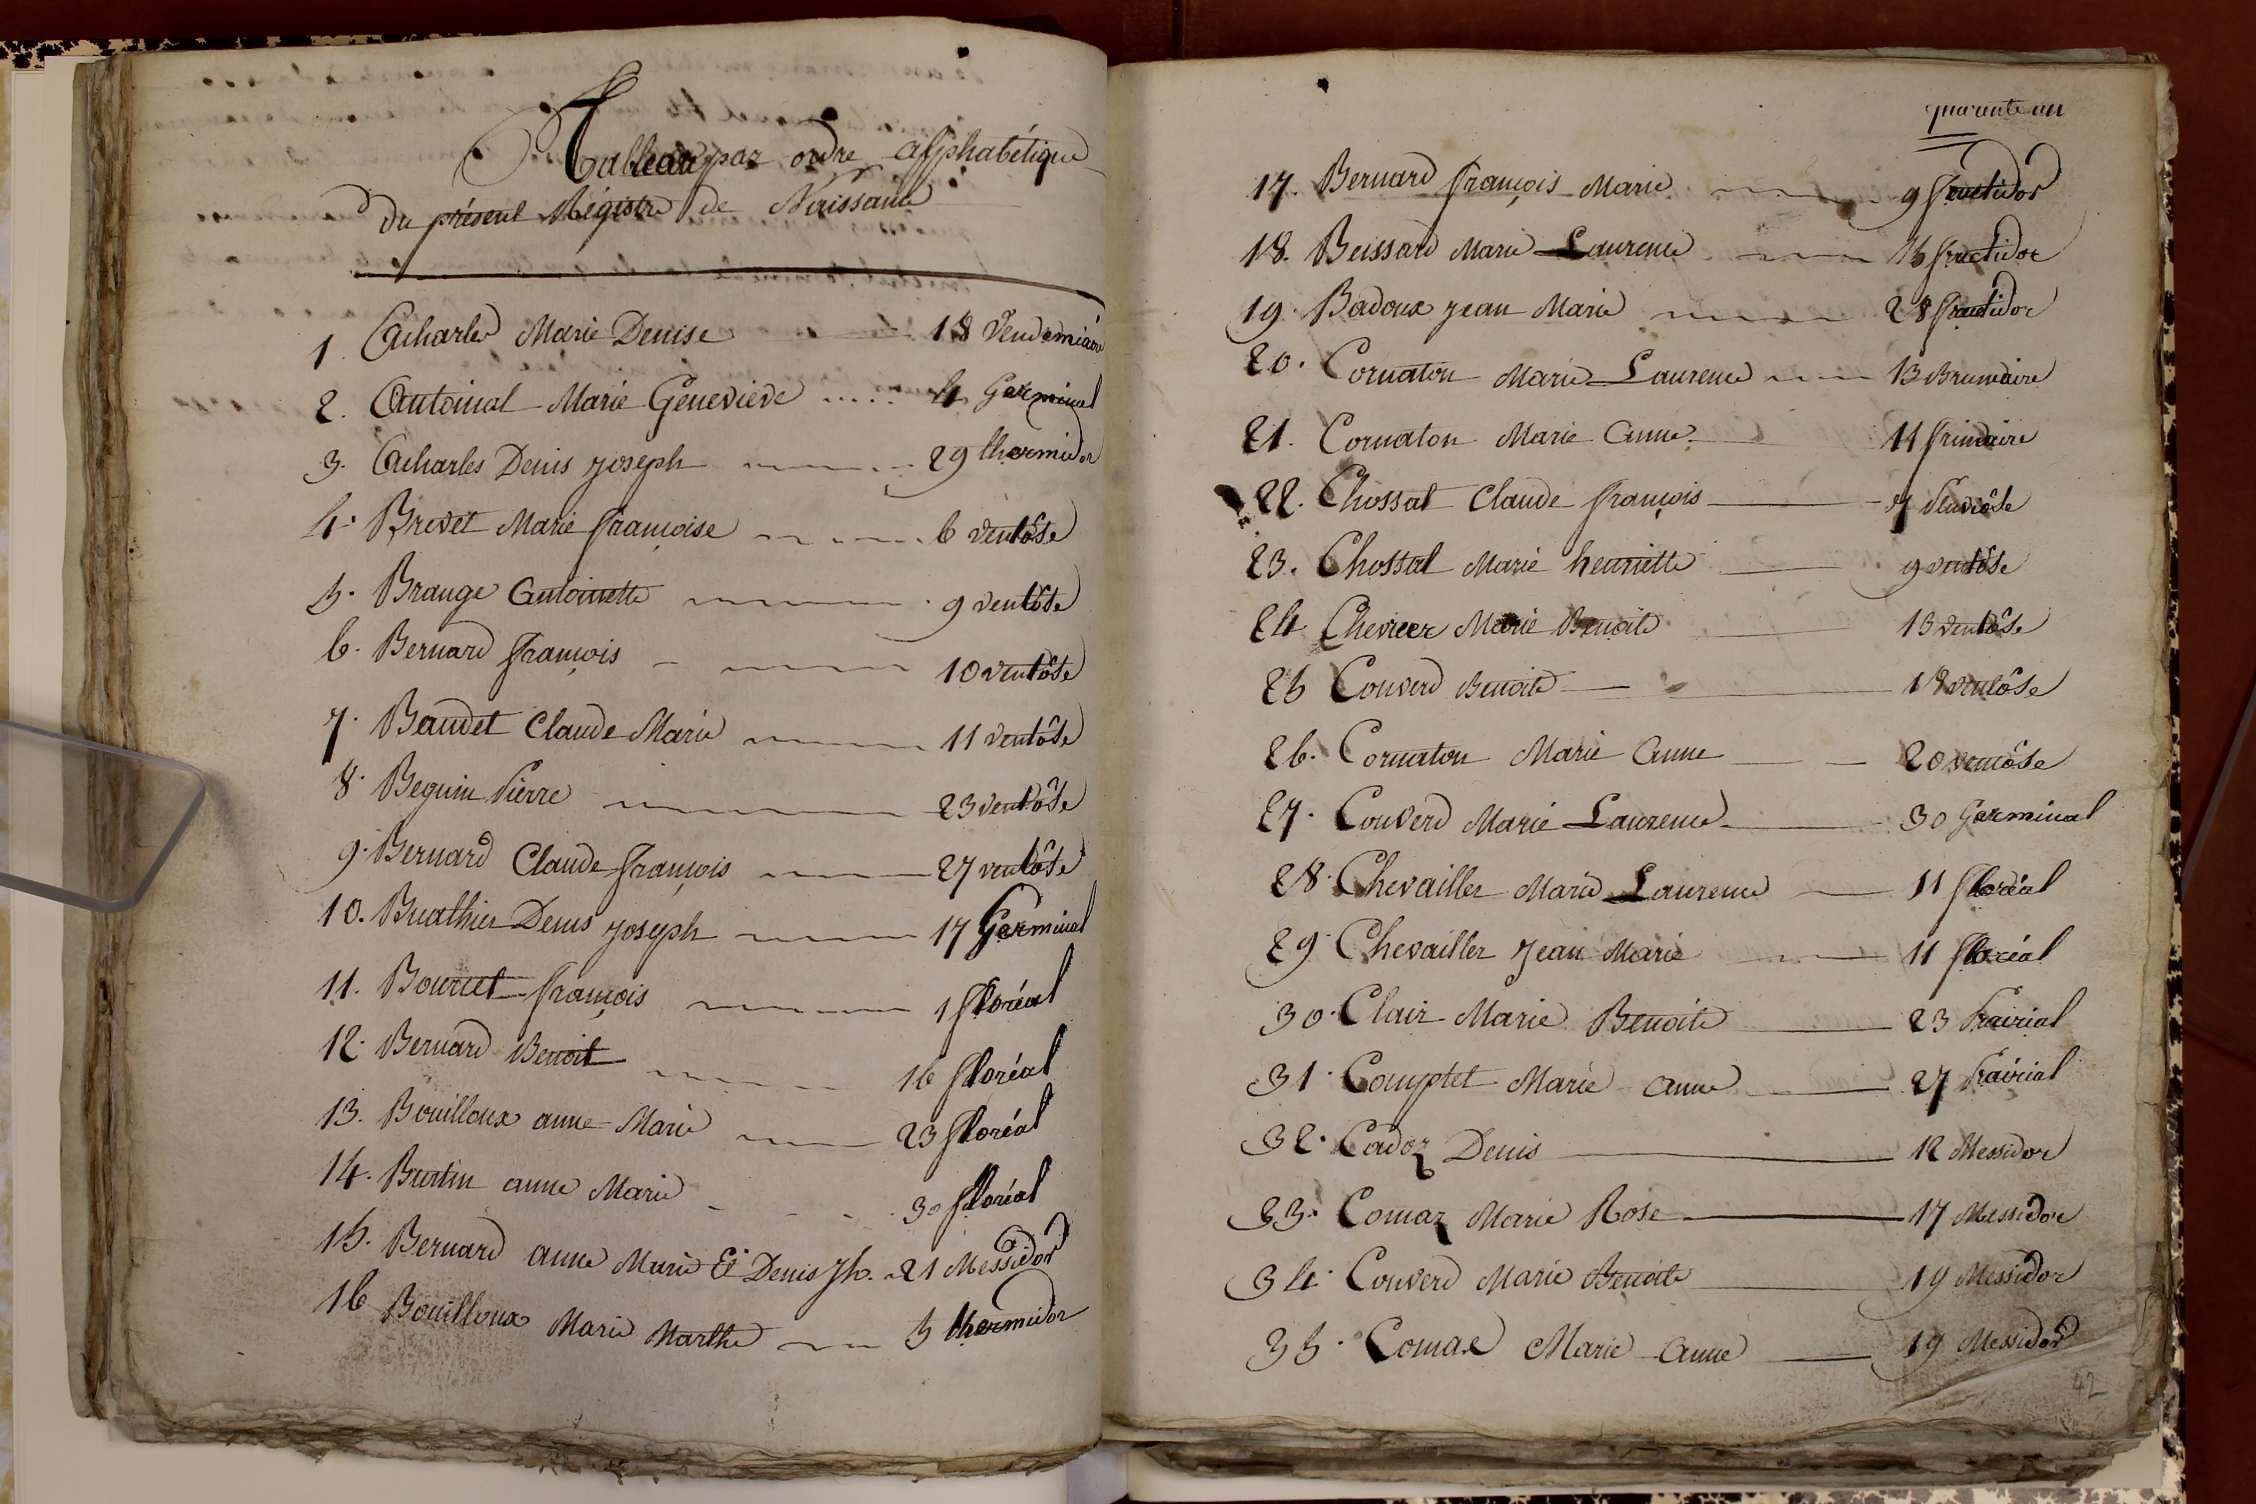 Tableau par ordre alphabétique
du présent Régistre de Naissance
1. Acharles Marie Denise 18 Vendemiaire
2. Antoinat Marie Geneviève 4 Germinal
3. Acharles Denis Joseph 29 thermidor
4. Brevet Marie françoise 6 ventôse
5. Brange Antoinette 9 ventôse
6. Bernard françois 10 ventôse
7. Baudet Claude Marie 11 ventôse
8. Beguin Pierre 23 ventôse
9. Bernard Claude françois 27 ventôse
10. Buathier Denis Joseph 17 Germinal
11. Bourcet françois 1 floréal
12. Bernard Benoit 16 floréal
13. Bouilloux anne Marie 23 floréal
14. Burtin anne Marie 30 floréal
15. Bernard anne Marie Et Denis Jh. 21 Messidor
16 Bouilloux Marie Marthe 5 thermidor
quarante un
17. Bernard françois Marie 9 fructidor
18. Beissard Marie Laurence 16 fructidor
19. Badoux Jean Marie 28 fructidor
20. Cornaton Marie Laurence 13 Brumaire
21. Cornaton Marie Anne 11 frimaire
22. Chossat Claude françois 7 Pluviôse
23. Chossat Marie henriette 9 ventôse
24 Chevrier Marie Benoite 13 ventôse
25 Couverd Benoite 18 ventôse
26. Cornaton Marie Anne 20 ventôse
27. Couverd Marie Laurence 30 Germinal
28. Chevailler Marie Laurence 11 floréal
29. Chevailler Jean Marie 11 floréal
30. Clair Marie Benoite 23 Prairial
31. Comptet Marie anne 27 Prairial
32. Cadoz Denis 12 Messidor
33. Comaz Marie Rose 17 Messidor
34. Couverd Marie Benoite 19 Messidor
35. Comax Marie Anne 19 Messidor
42